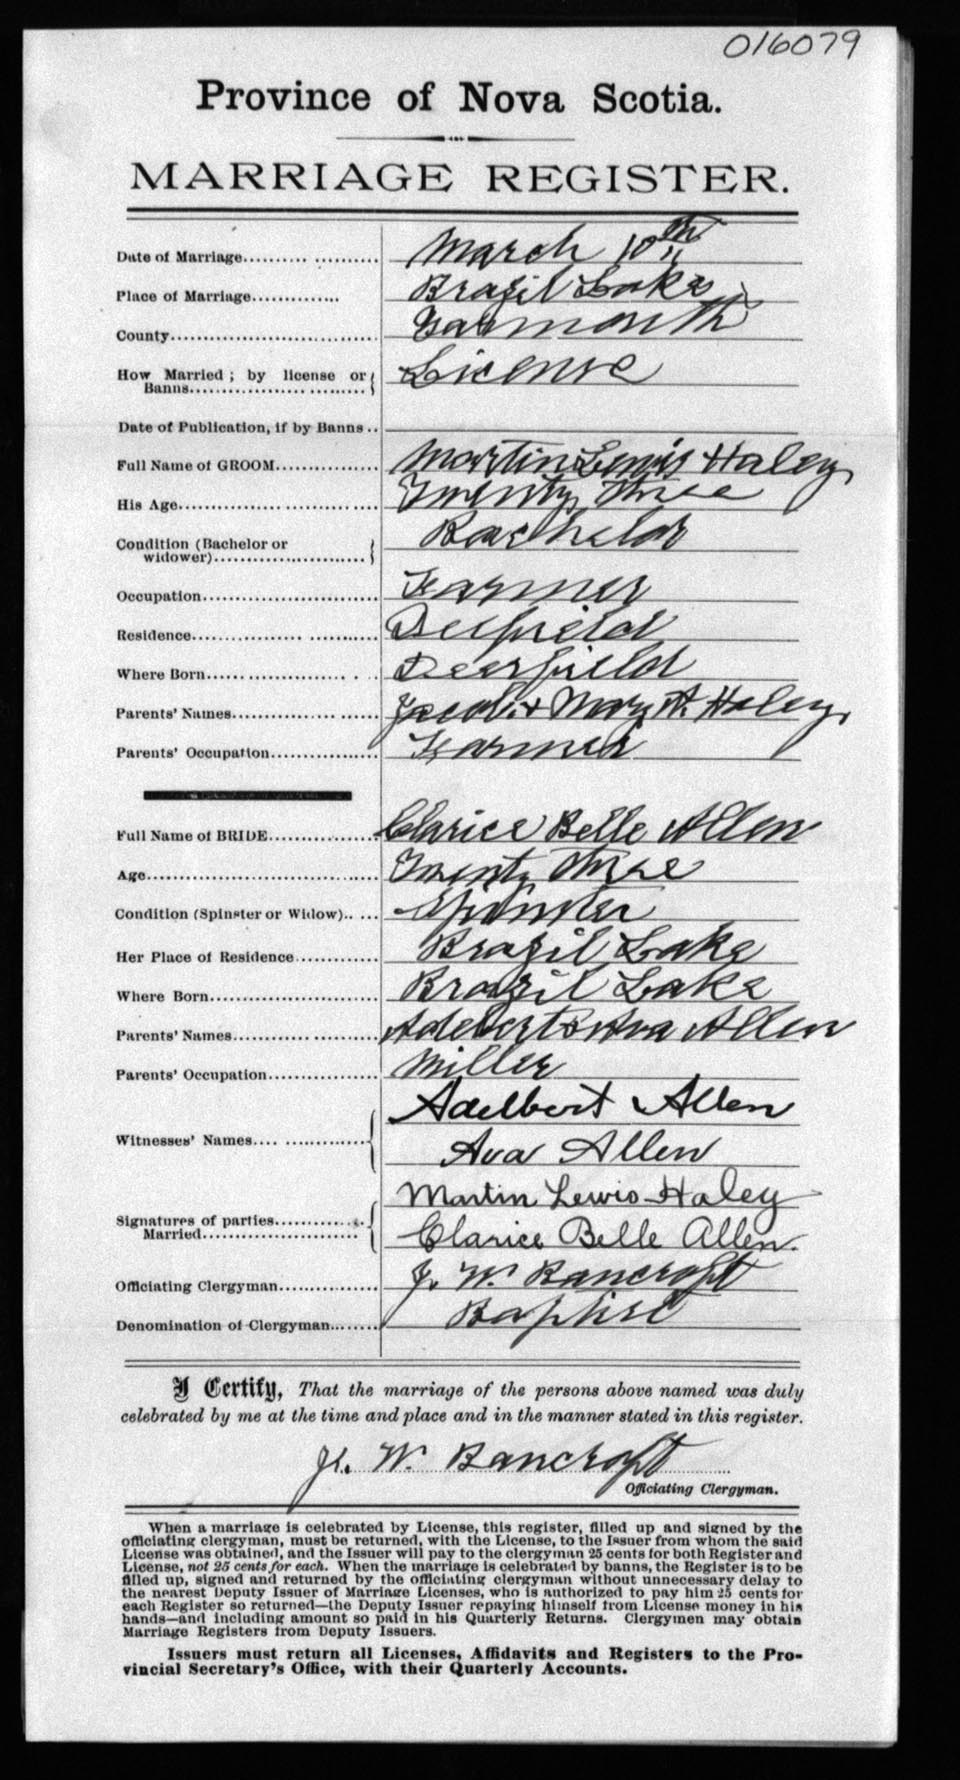 016079
Province of Nova Scotia.
MARRIAGE REGISTER.
Date of Marriage.......... .......... March 10th
Place of Marriage.............. Brazil Lake
County................................ Yarmouth
How Married ; by license or
Banns.................. ......... License
Date of Publication, if by Banns ..
Full Name of GROOM............... Martin Lewis Haley
His Age.................. ............ Twenty three
Condition (Bachelor or
widower).......................... Bachelor
Occupation........................... Farmer
Residence.............. ............ Deerfield
Where Born................... . . Deerfield
Parents' Names............. ....... Jacob & Mary A. Haley
Parents' Occupation................ Farmer
Full Name of BRIDE................. Clarice Belle Allen
Age.................................... Twenty three
Condition (Spinster or Widow).. ... Spinster
Her Place of Residence............ Brazil Lake
Where Born.......................... Brazil Lake
Parents' Names............. ......... Adelbert & Ava Allen
Parents' Occupation................. Miller
Adelbert Allen
Witnesses' Names.... ..............
Ava Allen
Martin Lewis Haley
Signatures of parties...............
Married.......................... Clarice Belle Allen.
Officiating Clergyman............... J. W. Bancroft
Denomination of Clergyman........ Baptist
I Certify, That the marriage of the persons above named was duly
celebrated by me at the time and place and in the manner stated in this register.
W. Bancroft
Officiating Clergyman.
When a marriage is celebrated by License, this register, filled up and signed by the
officiating clergyman, must be returned, with the License, to the Issuer from whom the said
License was obtained, and the Issuer will pay to the clergyman 25 cents for both Register and
License, not 25 cents for each. When the marriage is celebrated by banns, the Register is to be
filled up, signed and returned by the officiating clergyman without unnecessary delay to
the nearest Deputy Issuer of Marriage Licenses, who is authorized to pay him 25 cents for
each Register so returned—the Deputy Issuer repaying himself from License money in his
hands—and including amount so paid in his Quarterly Returns. Clergymen may obtain
Marriage Registers from Deputy Issuers.
Issuers must return all Licenses, Affidavits and Registers to the Pro-
vincial Secretary's Office, with their Quarterly Accounts.